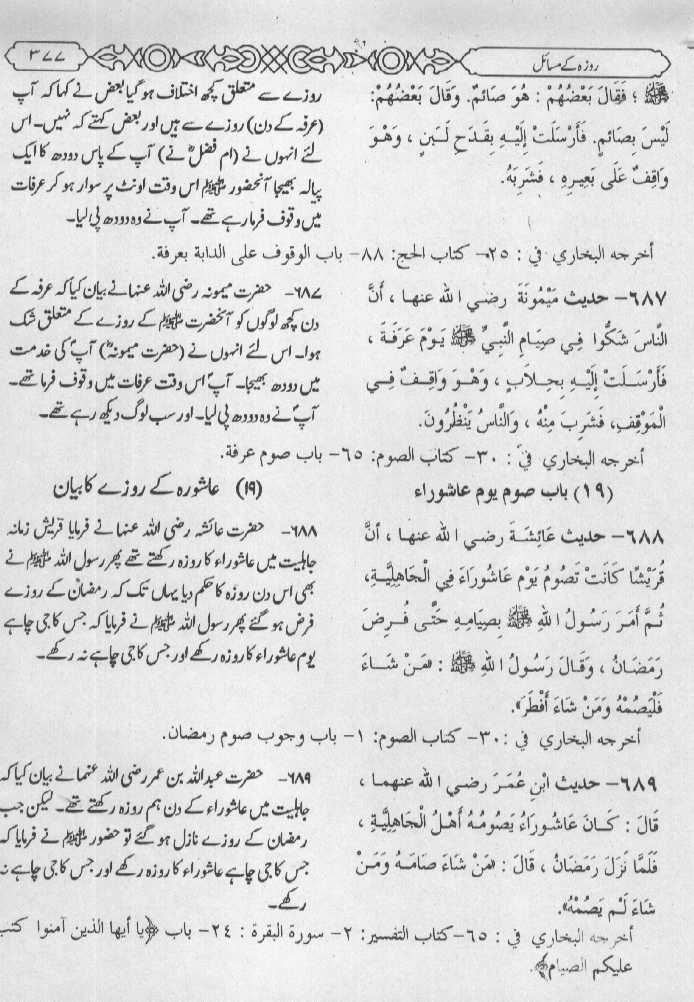 روزہ کے مسائل
۳۷۷
ﷺ ؛ فَقَالَ بَعْضُهُمْ : هُوَ صَائِمٌ. وَقَالَ بَعْضُهُمْ:
لَيْسَ بِصَائِمٍ. فَأَرْسَلَتْ إِلَيْهِ بِقَدَحِ لَبَنٍ ، وَهْوَ
وَاقِفٌ عَلَى بَعِيرِهِ ، فَشَرِبَهُ.
روزے سے متعلق کچھ اختلاف ہو گیا بعض نے کہا کہ آپ
(عرفہ کے دن) روزے سے ہیں اور بعض کہتے کہ نہیں۔ اس
لئے انہوں نے (ام فضلؓ نے) آپ کے پاس دودھ کا ایک
پیالہ بھیجا آنحضور ﷺ اس وقت اونٹ پر سوار ہو کر عرفات
میں وقوف فرما رہے تھے۔ آپ نے وہ دودھ پی لیا۔
أخرجه البخاري في : ٢٥- كتاب الحج: ٨٨- باب الوقوف على الدابة بعرفة.
٦٨٧- حديث مَيْمُونَةَ رضي الله عنها ، أَنَّ
النَّاسَ شَكُّوا فِي صِيَامِ النَّبِيِّ ﷺ يَوْمَ عَرَفَةَ ،
فَأَرْسَلَتْ إِلَيْهِ بِحِلَابٍ ، وَهْوَ وَاقِفٌ فِي
الْمَوْقِفِ، فَشَرِبَ مِنْهُ ، وَالنَّاسُ يَنْظُرُونَ.
۶۸۷- حضرت میمونہ رضی اللہ عنہا نے بیان کیا کہ عرفہ کے
دن کچھ لوگوں کو آنحضرت ﷺ کے روزے کے متعلق شک
ہوا۔ اس لئے انہوں نے (حضرت میمونہؓ) آپؐ کی خدمت
میں دودھ بھیجا۔ آپؐ اس وقت عرفات میں وقوف فرما تھے۔
آپؐ نے وہ دودھ پی لیا۔ اور سب لوگ دیکھ رہے تھے۔
أخرجه البخاري في : ٣٠- كتاب الصوم: ٦٥- باب صوم عرفة.
(١٩) باب صوم يوم عاشوراء
(۱۹) عاشورہ کے روزے کا بیان
٦٨٨- حديث عَائِشَةَ رضي الله عنها ، أنَّ
قُرَيْشًا كَانَتْ تَصُومُ يَوْمَ عَاشُورَاءَ فِي الْجَاهِلِيَّةِ،
ثُمَّ أَمَرَ رَسُولُ اللهِ ﷺ بِصِيَامِهِ حَتَّى فُرِضَ
رَمَضَانُ ، وَقَالَ رَسُولُ اللهِ ﷺ : «مَنْ شَاءَ
فَلْيَصُمْهُ وَمَنْ شَاءَ أَفْطَرَ».
۶۸۸- حضرت عائشہ رضی اللہ عنہا نے فرمایا قریش زمانہ
جاہلیت میں عاشوراء کا روزہ رکھتے تھے پھر رسول اللہ ﷺ نے
بھی اس دن روزہ کا حکم دیا یہاں تک کہ رمضان کے روزے
فرض ہو گئے پھر رسول اللہ ﷺ نے فرمایا کہ جس کا جی چاہے
یوم عاشوراء کا روزہ رکھے اور جس کا جی چاہے نہ رکھے۔
أخرجه البخاري في :٣٠- كتاب الصوم: ١- باب وجوب صوم رمضان.
٦٨٩- حديث ابْنِ عُمَرَ رضي الله عنهما ،
قَالَ : كَانَ عَاشُورَاءُ يَصُومُهُ أَهْلُ الْجَاهِلِيَّةِ ،
فَلَمَّا نَزَلَ رَمَضَانُ ، قَالَ : «مَنْ شَاءَ صَامَهُ وَمَنْ
شَاءَ لَمْ يَصُمْهُ».
۶۸۹- حضرت عبداللہ بن عمر رضی اللہ عنہما نے بیان کیا کہ
جاہلیت میں عاشوراء کے دن ہم روزہ رکھتے تھے۔ لیکن جب
رمضان کے روزے نازل ہو گئے تو حضور ﷺ نے فرمایا کہ
جس کا جی چاہے عاشوراء کا روزہ رکھے اور جس کا جی چاہے نہ
رکھے۔
أخرجه البخاري في : ٦٥-كتاب التفسير: ٢- سورة البقرة : ٢٤- باب ﴿يا أيها الذين آمنوا كتب
عليكم الصيام﴾.